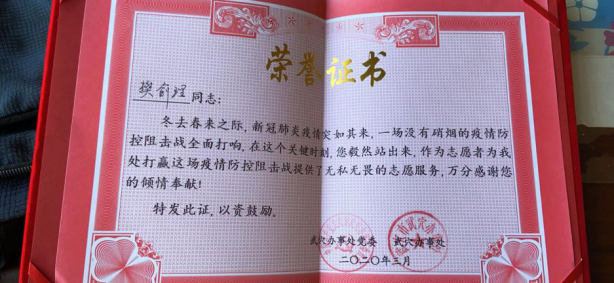 荣誉证书
樊剑程同志:
冬去春来之际,新冠肺炎疫情突如其来,一场没有硝烟的疫情防
控阻击战全面打响,在这个关键时刻,您毅然站出来,作为志愿者为我
处打赢这场疫情防控阻击战提供了无私无畏的志愿服务,万分感谢您
的倾情奉献!
特发此证,以资鼓励。
武穴办事处党委 武穴办事处
二〇二〇年三月